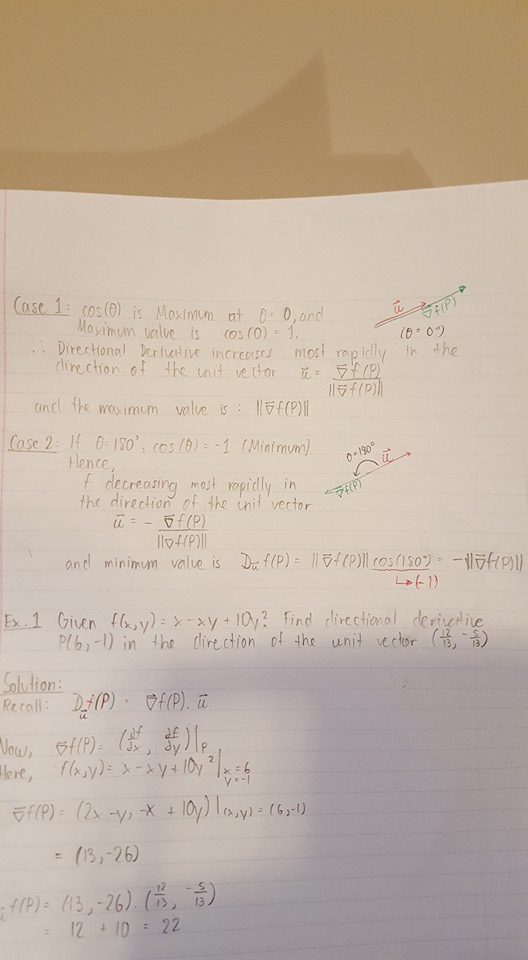 Case 1: cos(θ) is Maximum at θ=0, and
Maximum value is cos(0) = 1.
∴ Directional Derivative increases most rapidly in the
direction of the unit vector u⃗ = ∇⃗f(P) / ||∇⃗f(P)||
and the maximum value is : ||∇⃗f(P)||
u⃗
∇⃗f(P)
(θ = 0°)
Case 2: If θ=180°, cos(θ) = -1 (Minimum)
Hence,
f decreasing most rapidly in
the direction of the unit vector
u⃗ = - ∇⃗f(P) / ||∇⃗f(P)||
θ=180°
u⃗
∇⃗f(P)
and minimum value is D_u⃗ f(P) = ||∇⃗f(P)|| cos(180°) = -||∇⃗f(P)||
↳(-1)
Ex.1 Given f(x,y) = x - xy + 10y². Find directional derivative
P(6,-1) in the direction of the unit vector (12/13, -5/13)
Solution:
Recall: D_u⃗ f(P) = ∇⃗f(P) · u⃗
Now, ∇⃗f(P) = (∂f/∂x, ∂f/∂y)|_P
Here, f(x,y) = x - xy + 10y² | x=6 y=-1
∇⃗f(P) = (2x - y, -x + 10y)|(x,y) = (6,-1)
= (13, -26)
f(P) = (13, -26) · (12/13, -5/13)
= 12 + 10 = 22